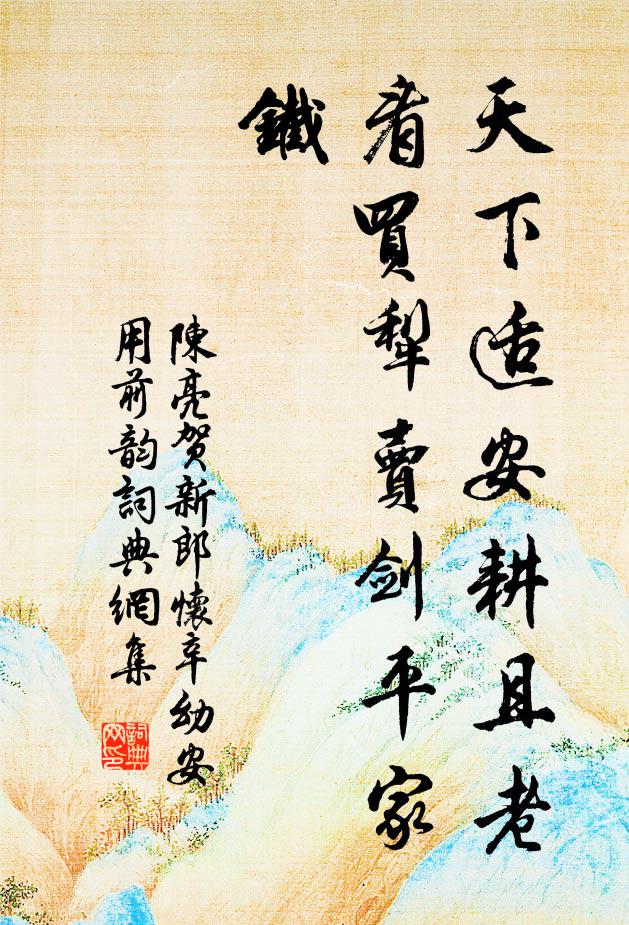 天下适安耕且老
看買犁賣劍平家
鐵
陳亮賀新郎懷辛幼安
用前韵詞典網集
詞典
网印